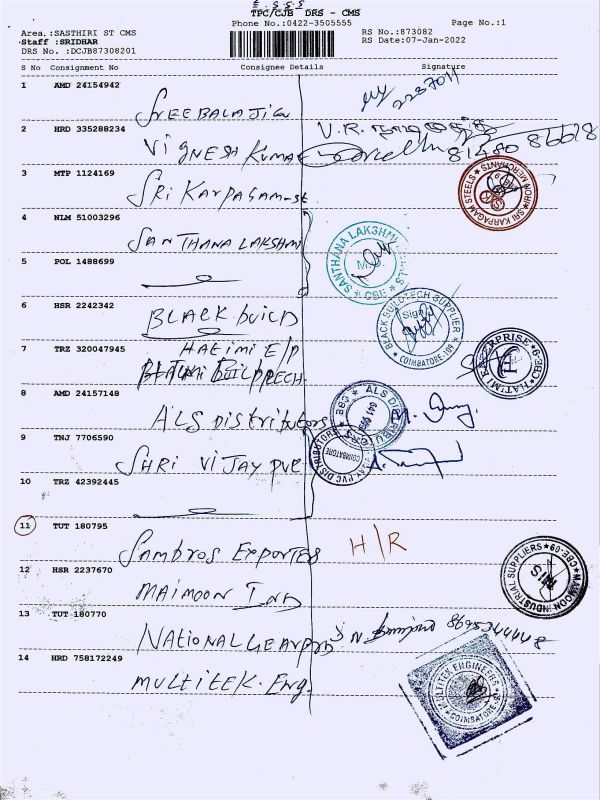 TPC/CJB DRS - CMS
Phone No.:0422-3505555
Page No.:1
Area.:SASTHIRI ST CMS
Staff :SRIDHAR
DRS No. :DCJB87308201
RS No.:873082
RS Date:07-Jan-2022
S No Consignment No Consignee Details Signature
1 AMD 24154942
SREE BALAJI
2237011
2 HRD 335288234
VIGNESH KUMAR
V.R.
3 MTP 1124169
SRI KARPAGAM-St
SRI KARPAGAM STEELS
IRON MERCHANTS
4 NLM 51003296
SANTHANA LAKSHMI
SANTHANA LAKSHMI
CBE
5 POL 1488699
6 HSR 2242342
BLACK BUILD
BLACK BUILDTECH SUPPLIER
COIMBATORE
7 TRZ 320047945
HATIMI E/P
HATIMI ENTERPRISE
CBE
8 AMD 24157148
ALS Distributors
ALS DISTRIBUTORS
CBE
9 TNJ 7706590
SHRI VIJAY PVC
VIJAY PVC DISTRIBUTORS
COIMBATORE
10 TRZ 42392445
11 TUT 180795
Sambros Exporter
H/R
12 HSR 2237670
MAIMOON IND
MAIMOON INDUSTRIAL SUPPLIERS
CBE-09
13 TUT 180770
NATIONAL GEAR
8695344448
14 HRD 758172249
MULTITEK. Eng.
MULTITEK ENGINEERS
COIMBATORE